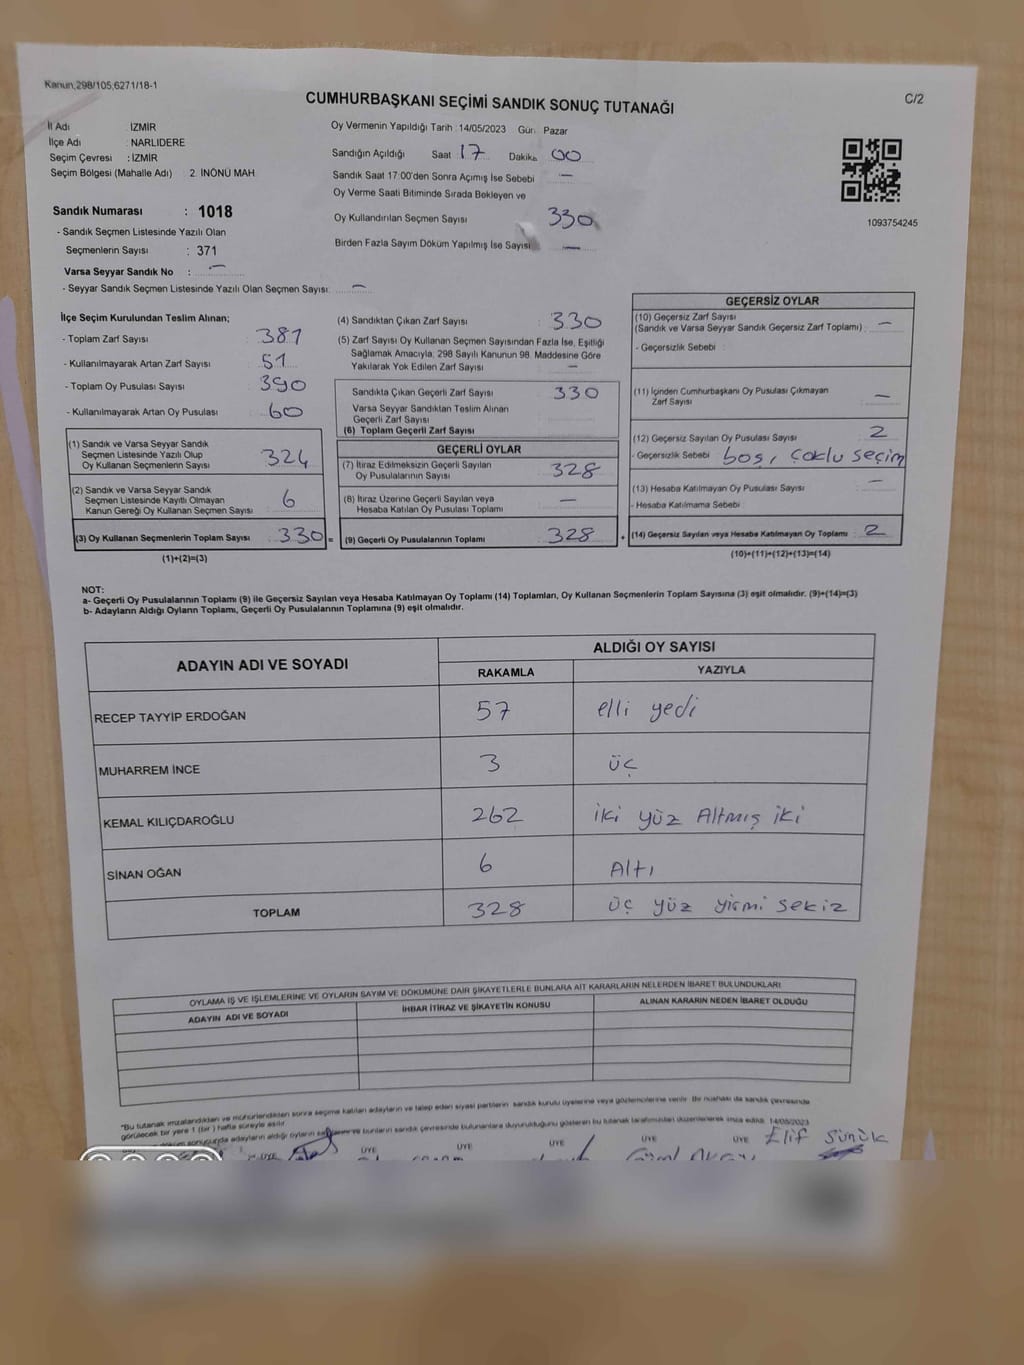 Kanun,298/105,6271/18-1
CUMHURBAŞKANI SEÇİMİ SANDIK SONUÇ TUTANAĞI
C/2
İl Adı İZMİR
İlçe Adı : NARLIDERE
Seçim Çevresi : İZMİR
Seçim Bölgesi (Mahalle Adı) 2. İNÖNÜ MAH
Sandık Numarası : 1018
- Sandık Seçmen Listesinde Yazılı Olan
Seçmenlerin Sayısı : 371
Varsa Seyyar Sandık No : —
- Seyyar Sandık Seçmen Listesinde Yazılı Olan Seçmen Sayısı: —
Oy Vermenin Yapıldığı Tarih : 14/05/2023 Gün: Pazar
Sandığın Açıldığı Saat 17 Dakika 00
Sandık Saat 17:00'den Sonra Açımış İse Sebebi —
Oy Verme Saati Bitiminde Sırada Bekleyen ve
Oy Kullandırılan Seçmen Sayısı 330
Birden Fazla Sayım Döküm Yapılmış İse Sayısı —
1093754245
İlçe Seçim Kurulundan Teslim Alınan;
- Toplam Zarf Sayısı : 381
- Kullanılmayarak Artan Zarf Sayısı : 51
- Toplam Oy Pusulası Sayısı : 390
- Kullanılmayarak Artan Oy Pusulası : 60
(1) Sandık ve Varsa Seyyar Sandık
Seçmen Listesinde Yazılı Olup
Oy Kullanan Seçmenlerin Sayısı : 324
(2) Sandık ve Varsa Seyyar Sandık
Seçmen Listesinde Kayıtlı Olmayan
Kanun Gereği Oy Kullanan Seçmen Sayısı : 6
(3) Oy Kullanan Seçmenlerin Toplam Sayısı : 330 =
(1)+(2)=(3)
(4) Sandıktan Çıkan Zarf Sayısı : 330
(5) Zarf Sayısı Oy Kullanan Seçmen Sayısından Fazla İse, Eşitliği
Sağlamak Amacıyla, 298 Sayılı Kanunun 98. Maddesine Göre
Yakılarak Yok Edilen Zarf Sayısı : —
Sandıkta Çıkan Geçerli Zarf Sayısı : 330
Varsa Seyyar Sandıktan Teslim Alınan
Geçerli Zarf Sayısı
(6) Toplam Geçerli Zarf Sayısı
GEÇERLİ OYLAR
(7) İtiraz Edilmeksizin Geçerli Sayılan
Oy Pusulalarının Sayısı : 328
(8) İtiraz Üzerine Geçerli Sayılan veya
Hesaba Katılan Oy Pusulası Toplamı : —
(9) Geçerli Oy Pusulalarının Toplamı : 328 +
GEÇERSİZ OYLAR
(10) Geçersiz Zarf Sayısı
(Sandık ve Varsa Seyyar Sandık Geçersiz Zarf Toplamı) : —
- Geçersizlik Sebebi :
(11) İçinden Cumhurbaşkanı Oy Pusulası Çıkmayan
Zarf Sayısı : —
(12) Geçersiz Sayılan Oy Pusulası Sayısı : 2
- Geçersizlik Sebebi boş, çoklu seçim
(13) Hesaba Katılmayan Oy Pusulası Sayısı : —
- Hesaba Katılmama Sebebi :
(14) Geçersiz Sayılan veya Hesaba Katılmayan Oy Toplamı : 2
(10)+(11)+(12)+(13)=(14)
NOT:
a- Geçerli Oy Pusulalarının Toplamı (9) ile Geçersiz Sayılan veya Hesaba Katılmayan Oy Toplamı (14) Toplamları, Oy Kullanan Seçmenlerin Toplam Sayısına (3) eşit olmalıdır. (9)+(14)=(3)
b- Adayların Aldığı Oyların Toplamı, Geçerli Oy Pusulalarının Toplamına (9) eşit olmalıdır.
ADAYIN ADI VE SOYADI
ALDIĞI OY SAYISI
RAKAMLA YAZIYLA
RECEP TAYYİP ERDOĞAN 57 elli yedi
MUHARREM İNCE 3 üç
KEMAL KILIÇDAROĞLU 262 iki yüz Altmış iki
SİNAN OĞAN 6 Altı
TOPLAM 328 üç yüz yirmi sekiz
OYLAMA İŞ VE İŞLEMLERİNE VE OYLARIN SAYIM VE DÖKÜMÜNE DAİR ŞİKAYETLERLE BUNLARA AİT KARARLARIN NELERDEN İBARET BULUNDUKLARI
ADAYIN ADI VE SOYADI İHBAR İTİRAZ VE ŞİKAYETİN KONUSU ALINAN KARARIN NEDEN İBARET OLDUĞU
"Bu tutanak imzalandıktan ve mühürlendikten sonra seçime katılan adayların ve talep eden siyasi partilerin sandık kurulu üyelerine veya gözlemcilerine verilir. Bir nüshası da sandık çevresinde
görülecek bir yere 1 (bir) hafta süreyle asılır.
döküm sonucunda adayların aldığı oyların ve bunların sandık çevresinde bulunanlara duyurulduğunu gösteren bu tutanak tarafımızdan düzenlenerek imza edildi. 14/05/2023
ÜYE ÜYE ÜYE ÜYE ÜYE ÜYE Elif Sünük